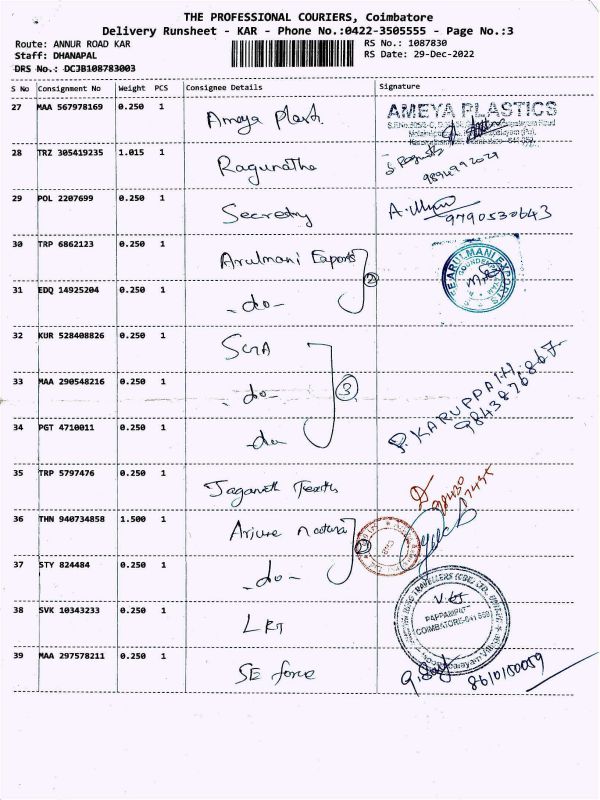 THE PROFESSIONAL COURIERS, Coimbatore
Delivery Runsheet - KAR - Phone No.:0422-3505555 - Page No.:3
Route: ANNUR ROAD KAR
RS No.: 1087830
Staff: DHANAPAL
RS Date: 29-Dec-2022
DRS No.: DCJB108783003
S No Consignment No Weight PCS Consignee Details Signature
27 MAA 567978169 0.250 1 Ameya Plasti. AMEYA PLASTICS
28 TRZ 305419235 1.015 1 Ragunatha
29 POL 2207699 0.250 1 Secretry 9790530643
30 TRP 6862123 0.250 1 Arulmani Exports 2
31 EDQ 14925204 0.250 1 -do-
32 KUR 528408826 0.250 1
33 MAA 290548216 0.250 1 -do- 3
P. KARUPPAIH.
9843876867
34 PGT 4710011 0.250 1 do
35 TRP 5797476 0.250 1 Jaganath
98430
17435
36 THN 940734858 1.500 1 2
37 STY 824484 0.250 1 -do-
38 SVK 10343233 0.250 1 LRT
COIMBATORE-641 659
39 MAA 297578211 0.250 1 SE force 8610150059